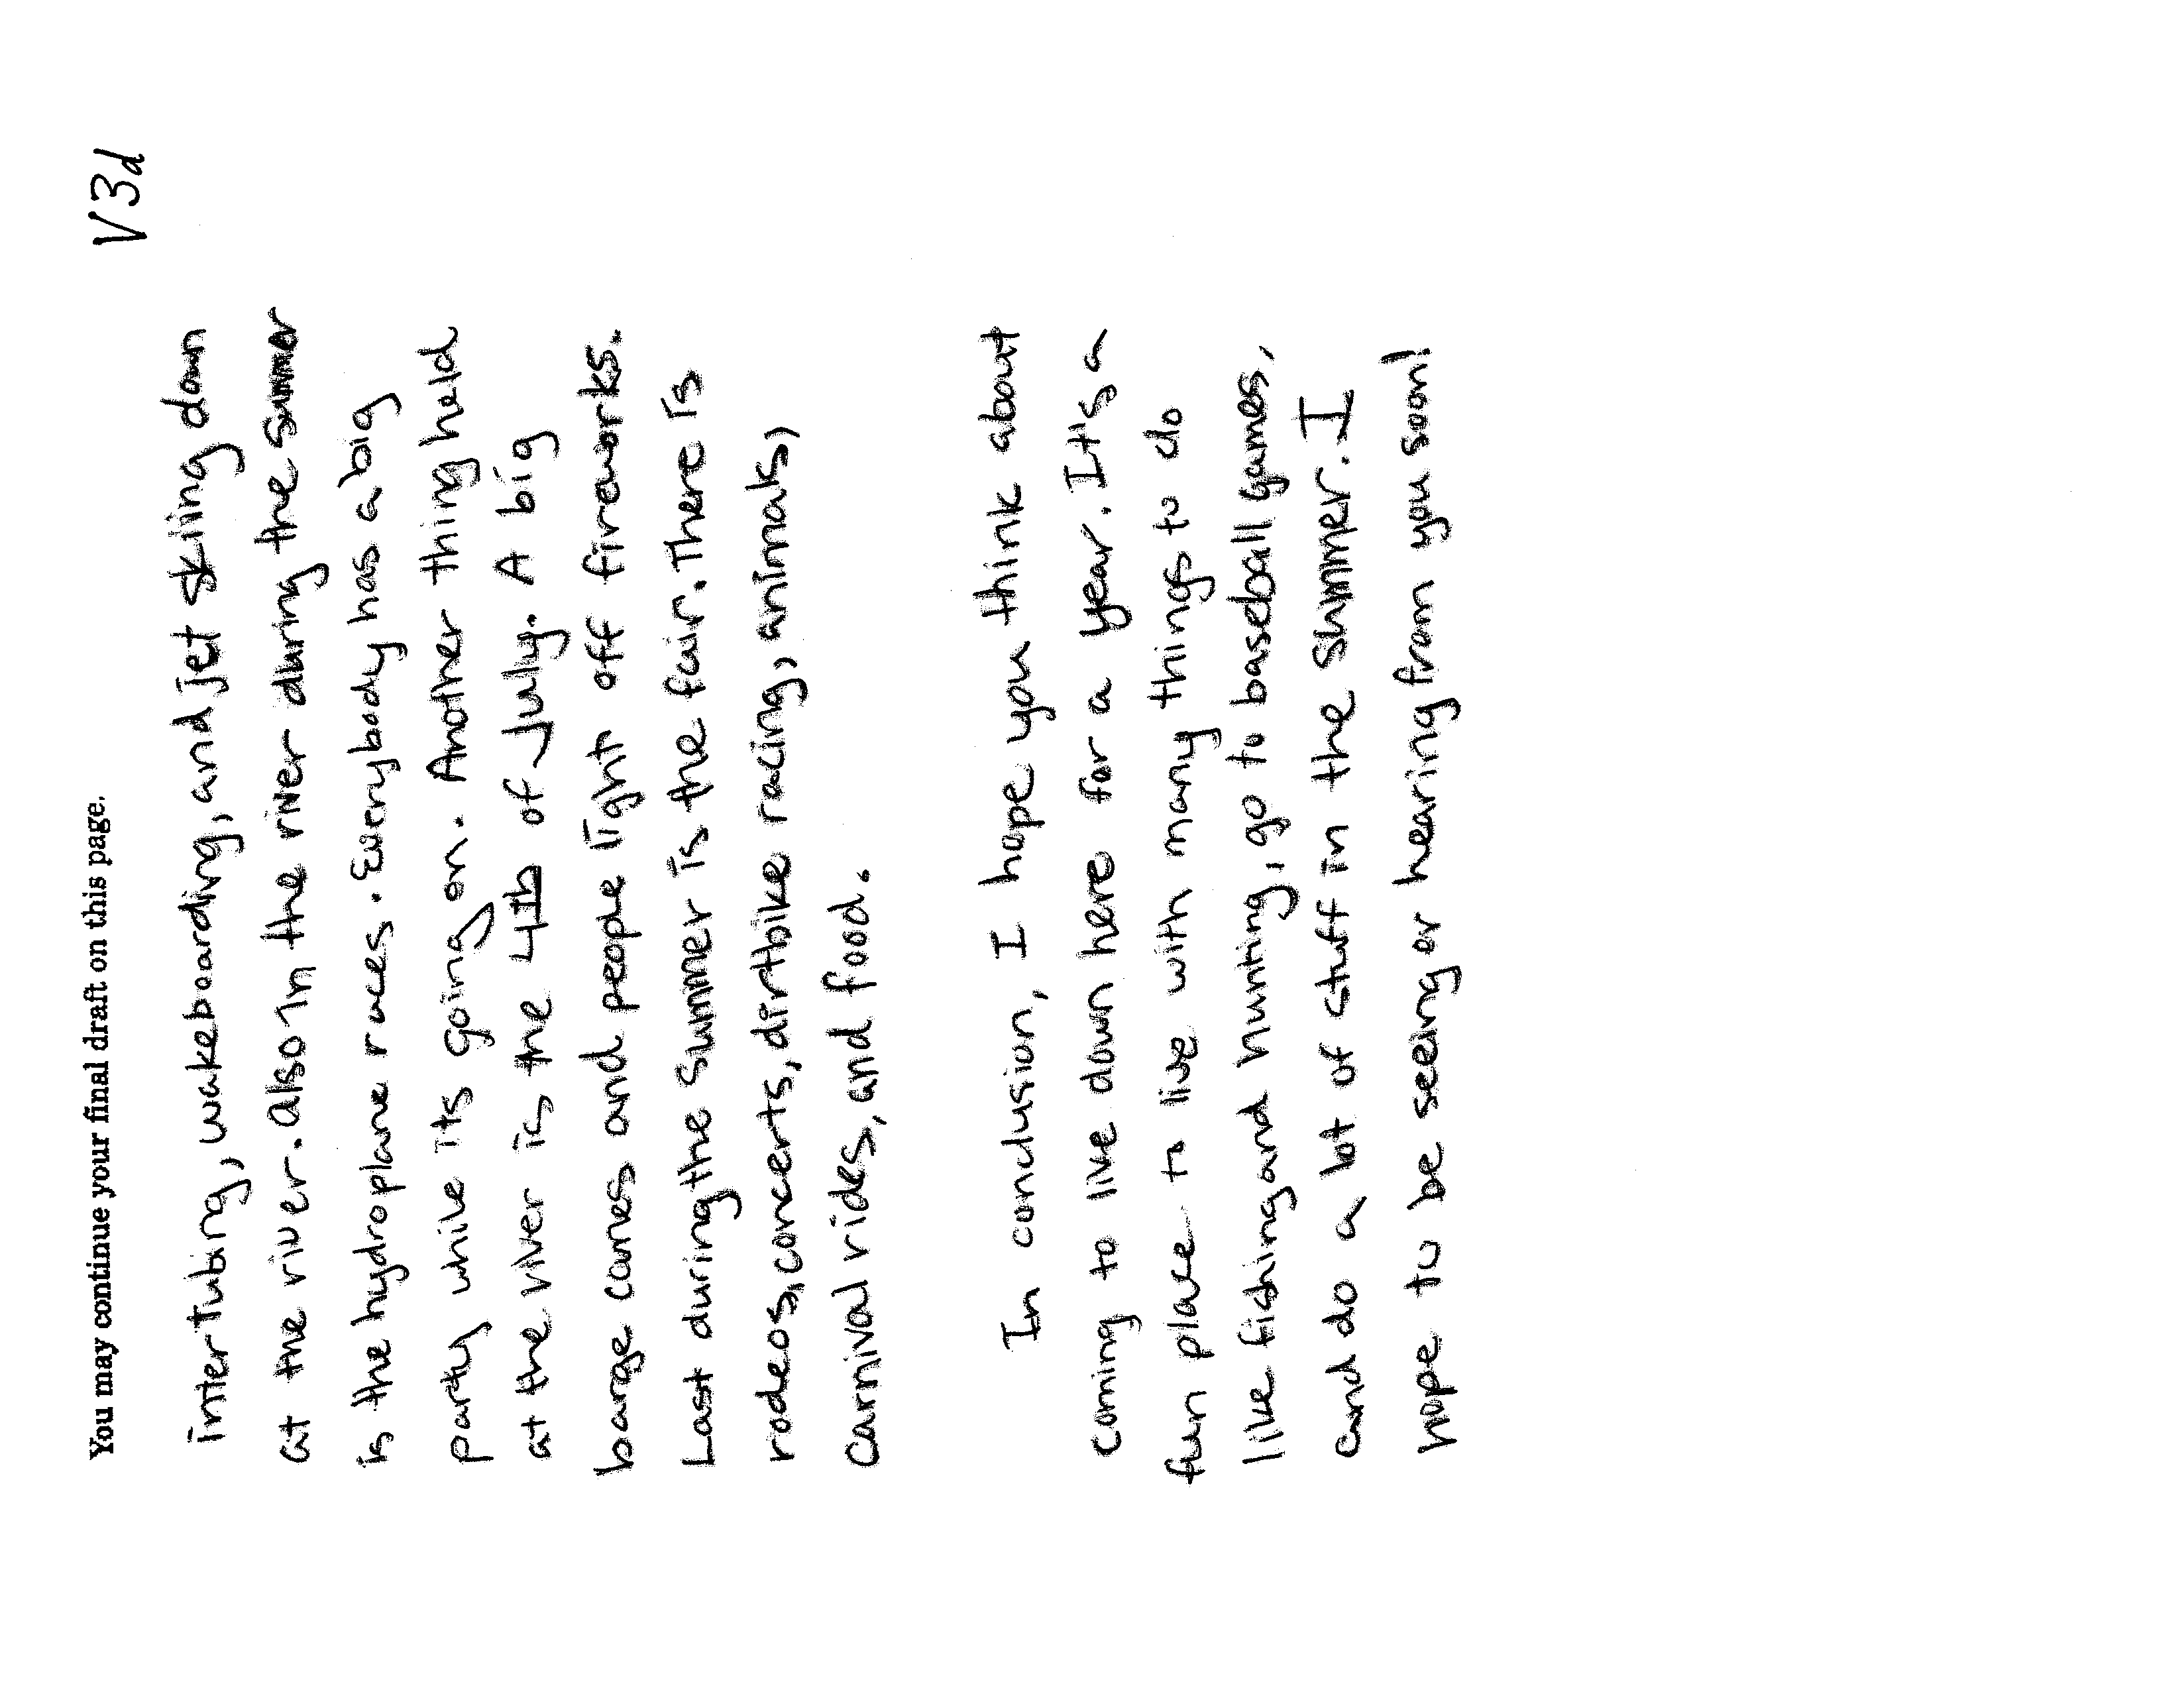 You may continue your final draft on this page.
V3d
intertubing, wakeboarding, and jet skiing down
at the river. Also in the river during the summer
is the hydroplane races. Everybody has a big
party while its going on. Another thing held
at the river is the 4th of July. A big
barge comes and people light off fireworks.
Last during the summer is the fair. There is
rodeos, concerts, dirtbike racing, animals,
carnival rides, and food.
In conclusion, I hope you think about
coming to live down here for a year. It's a
fun place to live with many things to do
like fishing and hunting, go to baseball games,
and do a lot of stuff in the summer. I
hope to be seeing or hearing from you soon!